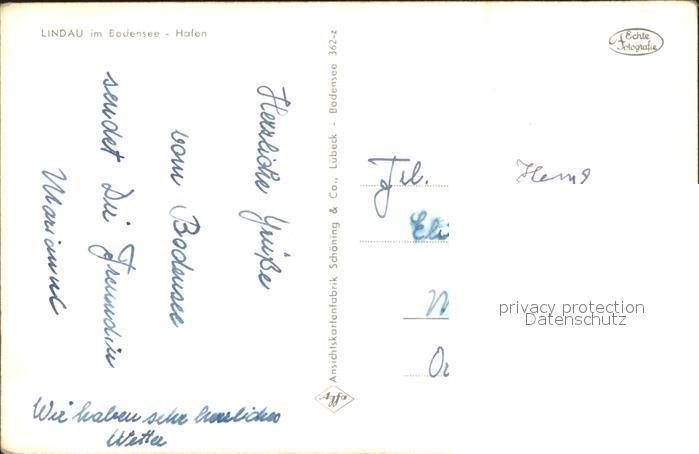 LINDAU im Bodensee - Hafen
Echte
Fotografie
Herzliche Grüße
vom Bodensee
sendet Dir Freundin
Marianne
Wir haben sehr herrliches
Wetter
Ansichtskartenfabrik Schöning & Co., Lübeck - Bodensee 362-z
Agfa
Frl.
Eli
privacy protection
Datenschutz